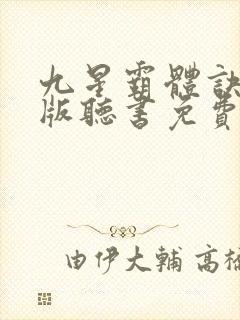 九星霸體訣
版聽書免費
由伊大輔 高橋